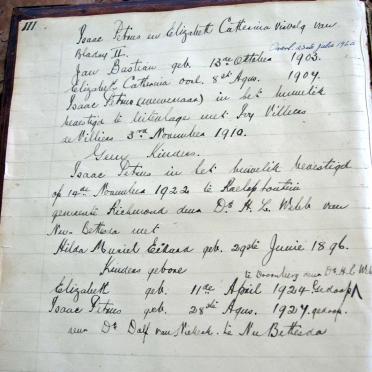 III.
Isaac Petrus en Elizabeth Catherina vervolg van
Bladsy II.
Jan Bastian geb. 13de Oktober 1903.
Elizabeth Catherina oorl. 8ste Aqus. 1907.
Isaac Petrus (wewenaar) in het huwelik
bevestigd te Uitenhage met Ivy Villiers
de Villiers 3rd November 1910.
Geen Kinders.
Isaac Petrus in het huwelik bevestigd
op 14de November 1922 te
gemeente Richmond deur Ds H. L. van
Nu-Bethesda met
Hilda Muriel geb. 29ste Junie 1896.
Kinders gebore
te Doornberg deur Ds H. L.
Elizabeth geb. 11de April 1924. Gedoop
Isaac Petrus geb. 28ste Aqus. 1927. gedoop.
deur Ds van Niekerk te Nu Bethesda